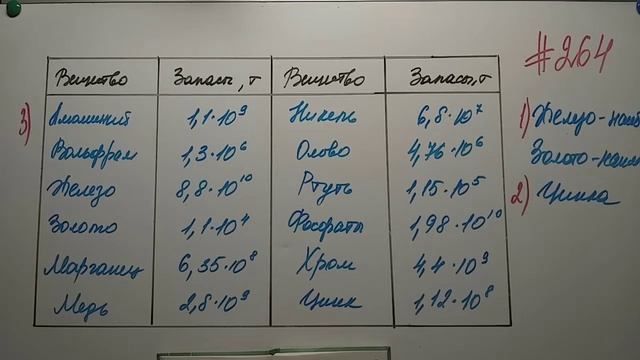 #264
Вещество Запасы, т Вещество Запасы, т
3) Алюминий 1,1·10⁹ Никель 6,8·10⁷
Вольфрам 1,3·10⁶ Олово 4,76·10⁶
Железо 8,8·10¹⁰ Ртуть 1,15·10⁵
Золото 1,1·10⁴ Фосфаты 1,98·10¹⁰
Марганец 6,35·10⁸ Хром 4,4·10⁹
Медь 2,8·10⁹ Цинк 1,12·10⁸
1) Железо-наиб
Золото-наим
2) Цинка